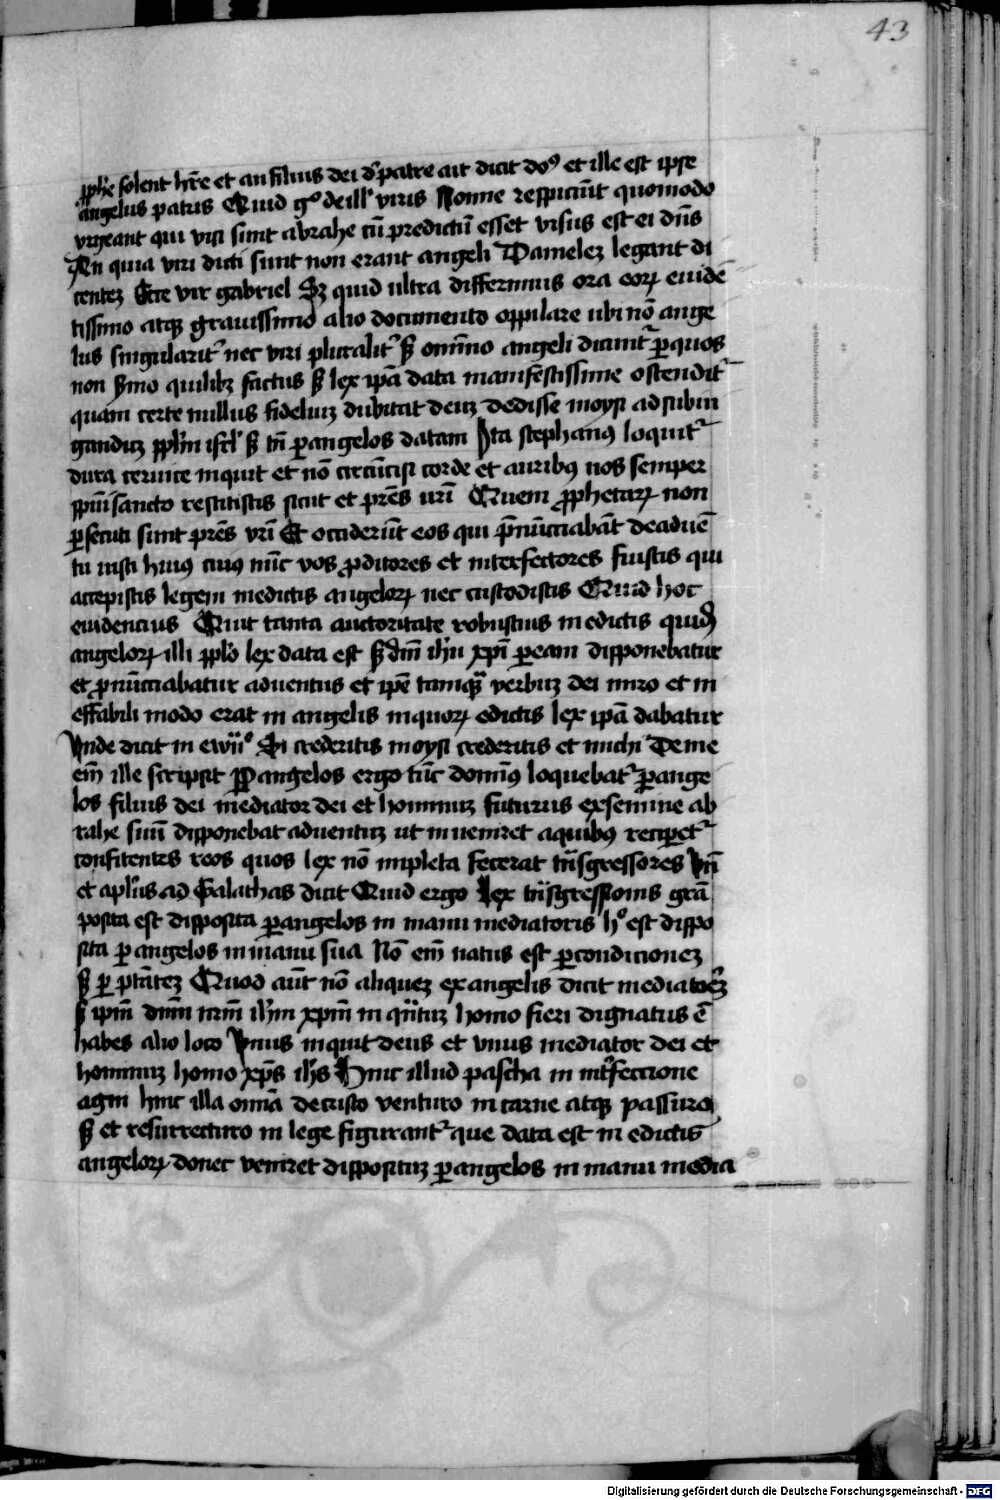 43
pphe solent hr̄e et an filius dei d' patre ait dicit do⁹ et ille est ipse
angelus patris Quid gº de ill' viris Nonne respiciūt quomodo
vrgeant qui visi sunt abrahe cū predictū esset visus est ei dn̄s
An quia viri dicti sunt non erant angeli Danielez legant di
centez Ecce vir gabriel Sz quid ultra differimus ora eoꝝ euidē
tissimo atqꝫ grauissimo alio documento oppilare ubi nō ange
lus singularit̉ nec viri pluralit̉ sꝫ omīno angeli dicunt̉ ꝑ quos
non s̉mo quilibꝫ factus sꝫ lex ip̄a data manifestissime ostendit̉
quam certe nullus fideliuz dubitat deuz dedisse moysi ad subiu
ganduz pplm isrl' sꝫ tn̄ ꝑ angelos datam Ita stephan⁹ loquit̉
dura ceruice inquit et nō circūcisi corde et aurib⁹ uos semper
spūi sancto restitistis sicut et pr̄es vr̄i Quem ꝓphetaꝝ non
ꝑsecuti sunt pr̄es vr̄i Et occiderūt eos qui p̄nūcciabāt de aduē
tu iusti hui⁹ cui⁹ nūc vos ꝓditores et interfectores fuistis qui
accepistis legem in edictis angeloꝝ nec custodistis Quid hoc
euidencius Quit tanta auctoritate robustius in edictis quid'
angeloꝝ illi pplo lex data est sꝫ dn̄i ihū xp̄i ꝑ eam disponebatur
et ꝓnūcciabatur aduentus et ip̄e tamqᷓ verbuz dei miro et in
effabili modo erat in angelis in quoꝝ edictis lex ip̄a dabatur
Vnde dicit in ewū̉º Si crederitis moysi crederitis et michi De me
em̄ ille scripsit Per angelos ergo tūc domin⁹ loquebat̉ ꝑ ange
los filius dei mediator dei et hominuz futurus ex semine ab
rahe suū disponebat aduentuz ut inueniret a quib⁹ reciperet̉
confitentes reos quos lex nō impleta fecerat tn̄sgressores Vn̄
et apl'us ad Galathas dicit Quid ergo Lex tn̄sgressionis grā
posita est disposita ꝑ angelos in manu mediatoris hº est dispo
sita ꝑ angelos in manu sua Nō em̄ natus est ꝑ condicionez
sꝫ ꝑ ptātez Quod aūt nō aliquez ex angelis dicit mediatorēz
sꝫ ipm̄ dnm̄ nrm̄ ih'm xpm̄ in qn̄tuz homo fieri dignatus ē
habes alio loco Vnus inquit deus et vnus mediator dei et
hominuz homo xp̄s ih's Hinc illud pascha in int̉feccione
agni hinc illa omīa de cristo venturo in carne atqꝫ passuro
sꝫ et resurrecturo in lege figurant̉ que data est in edictis
angeloꝝ donec veniret dispositus ꝑ angelos in manu media
Digitalisierung gefördert durch die Deutsche Forschungsgemeinschaft - DFG